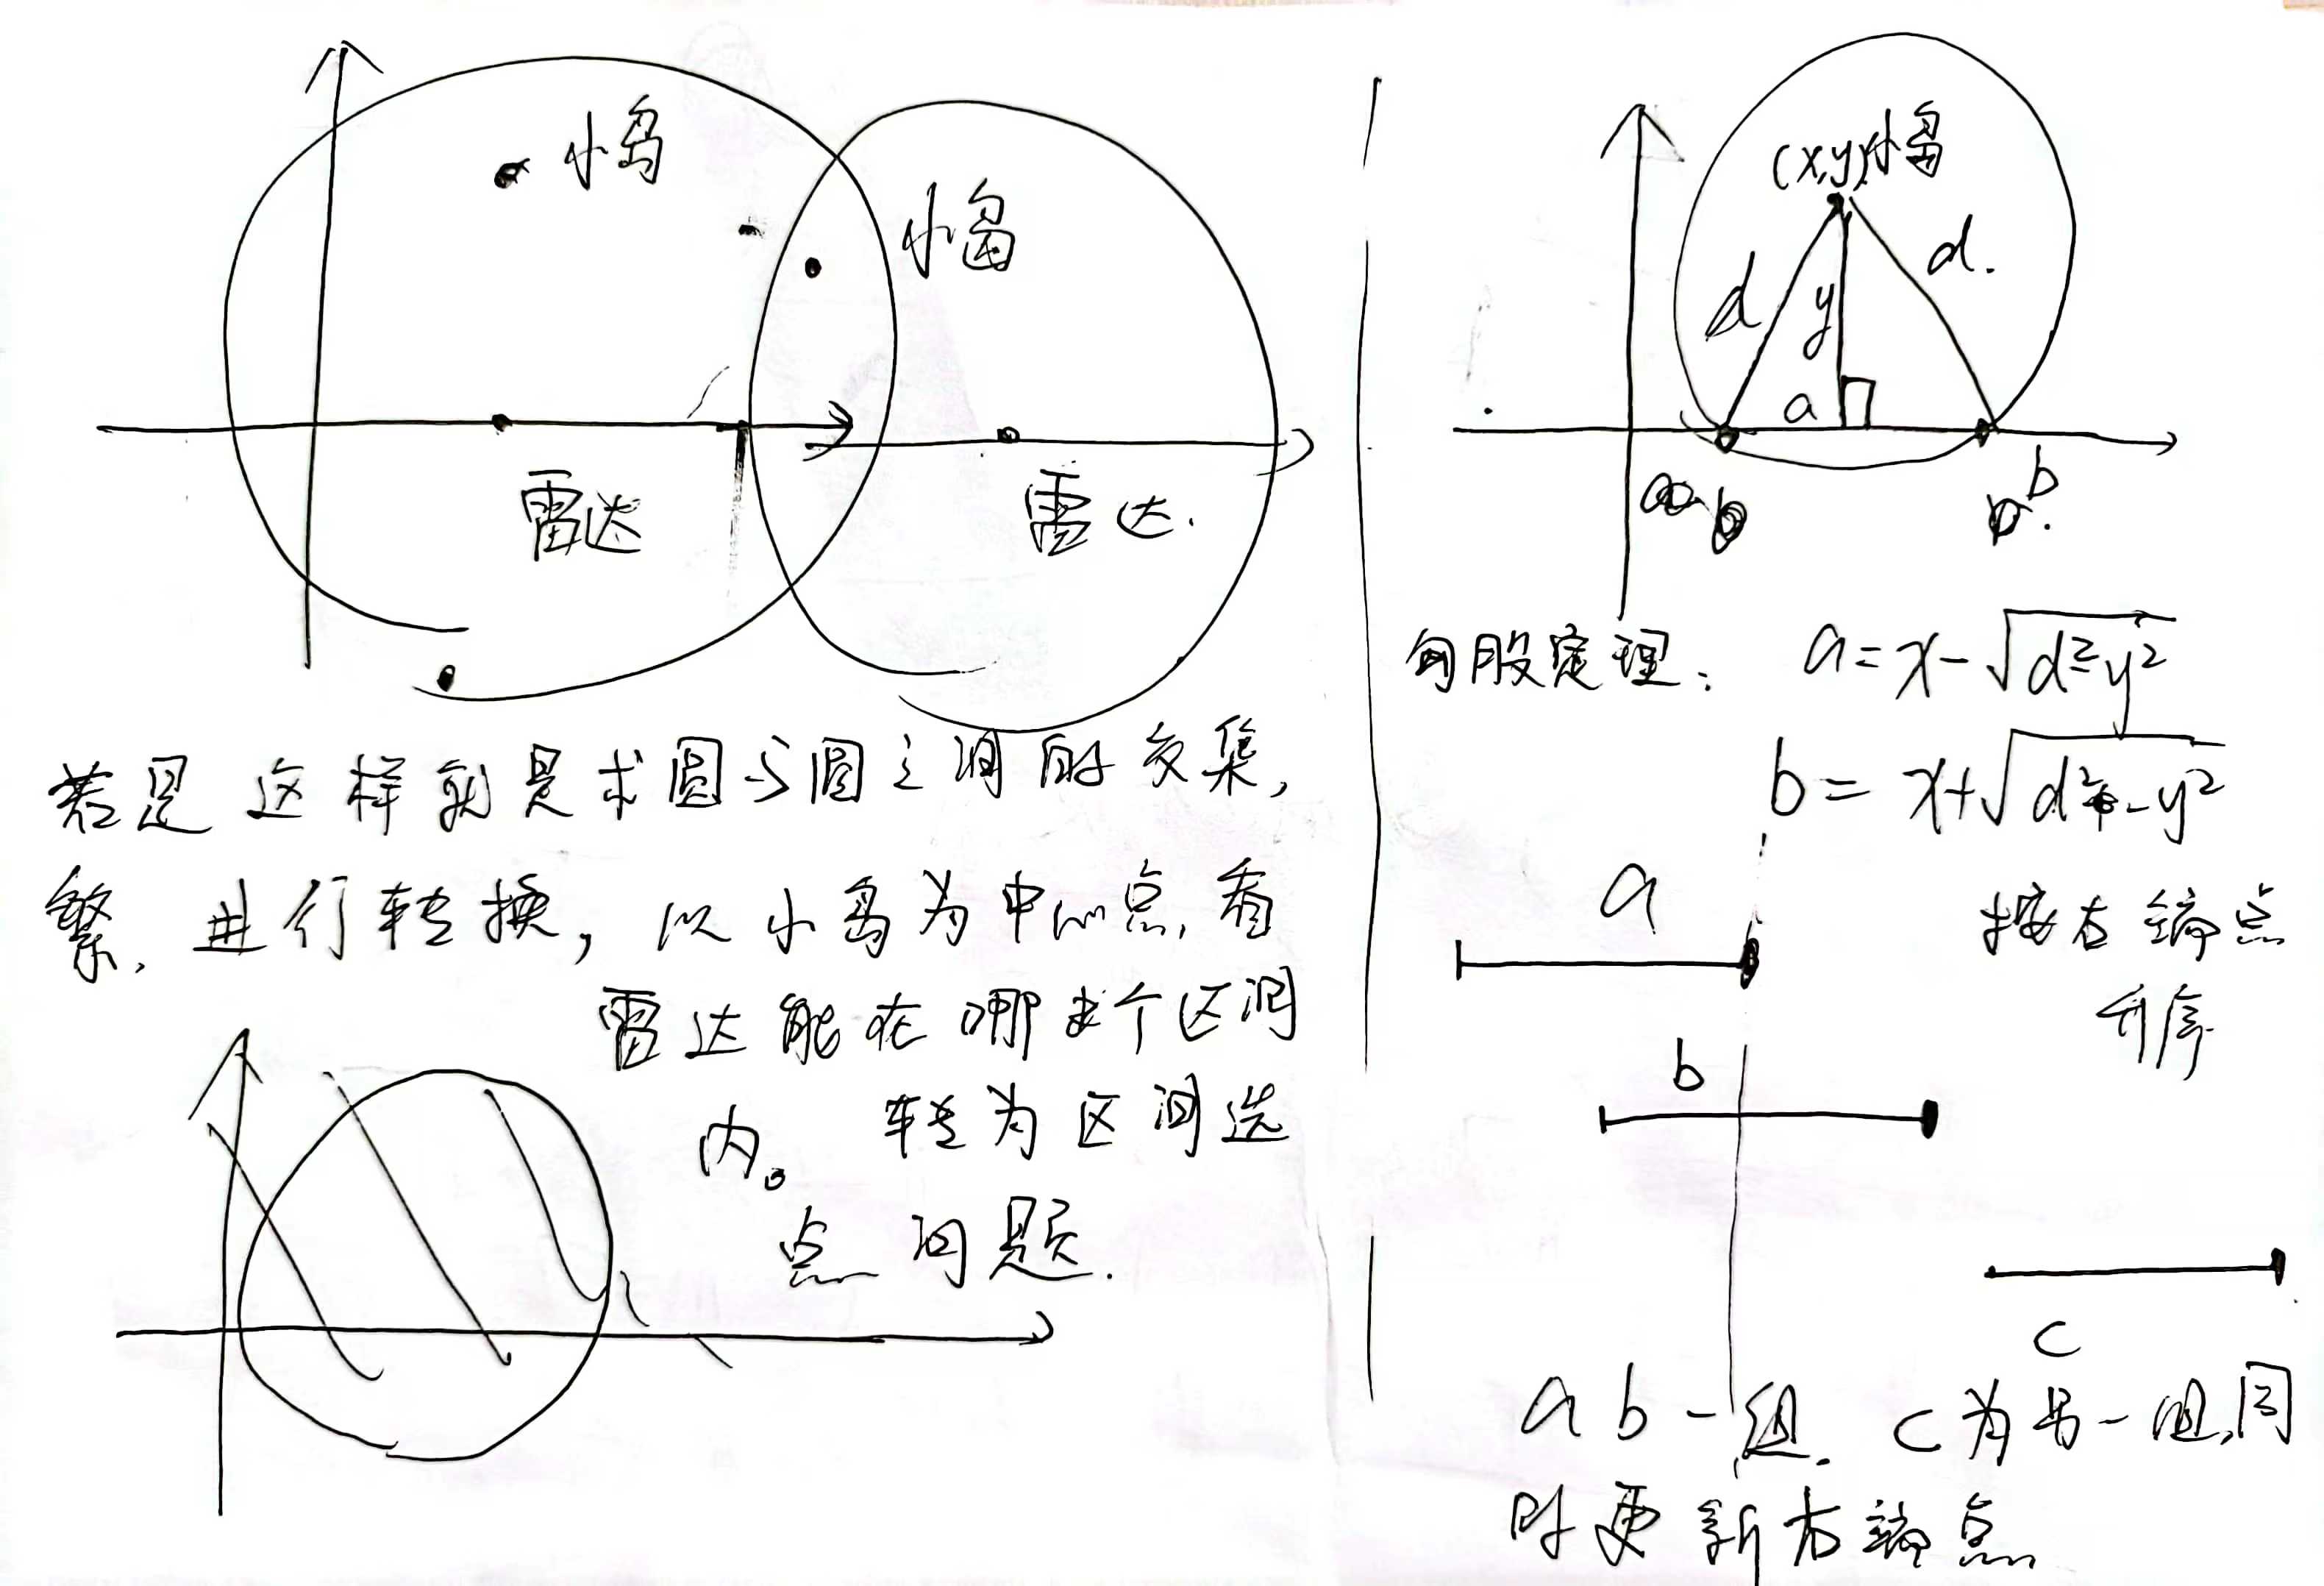 小岛
小岛
雷达
雷达.
若是这样就是求圆与圆之间的交集,
繁. 进行转换, 以小岛为中心点, 看
雷达能在哪个区间
内。 转为区间选
点问题.
(x,y)小岛
d
d.
y
a
b
勾股定理: a=x-√d²-y²
b=x+√d²-y²
a
按右端点
升序
b
c
a b 一组. c为另一组,同
时更新右端点